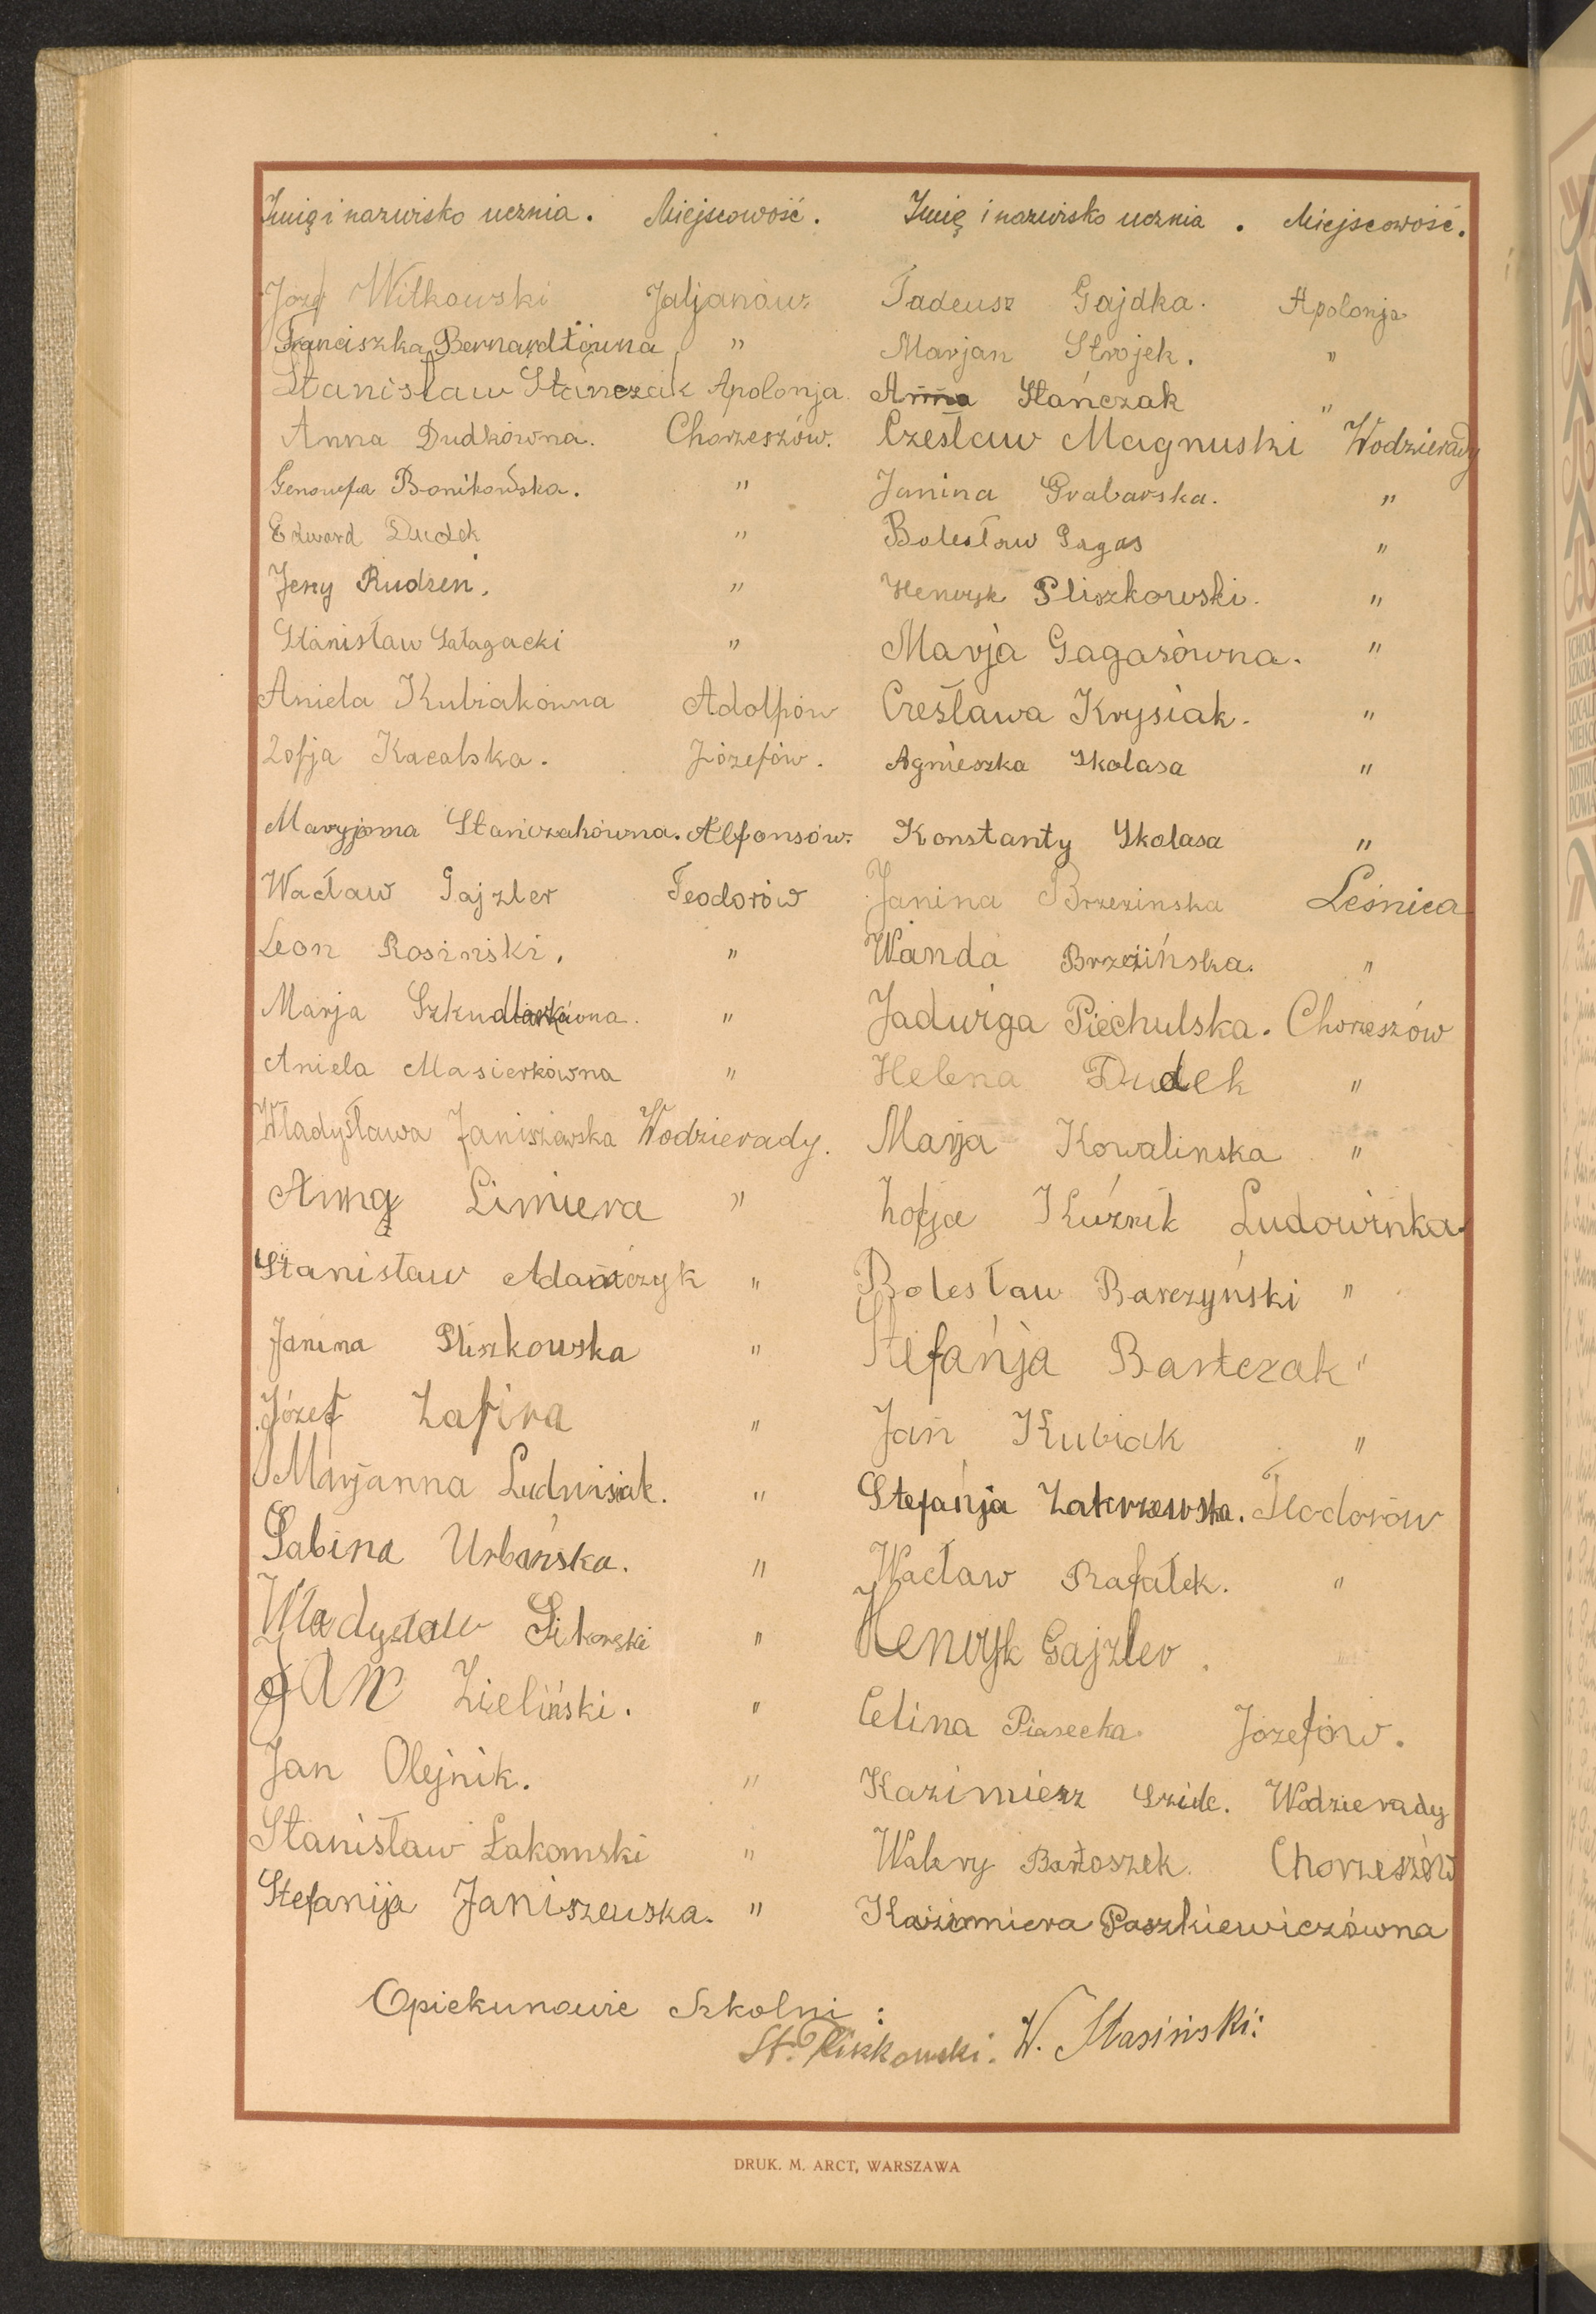 Imię i nazwisko ucznia. Miejscowość. Imię i nazwisko ucznia. Miejscowość.
Józef Witkowski Juljanów Tadeusz Gajdka. Apolonja
Franciszka Bernardtówna " Marjan Strojek. "
Stanisław Stańczak Apolonja Anna Stańczak "
Anna Dudkówna. Chorzeszów. Czesław Magnuski Wodzierady
Genowefa Bonikowska. " Janina Grabarska. "
Edward Dudek " Bolesław Gagas "
Jerzy Rudzeń. " Henryk Pliszkowski. "
Stanisław Sałagacki " Marja Gagasówna. "
Aniela Kubiakówna Adolfów Czesława Krysiak. "
Zofja Kacalska. Józefów. Agnieszka Skolasa "
Maryjanna Stańczakówna. Alfonsów. Konstanty Skolasa "
Wacław Gajzler Teodorów Janina Brzezinska Leśnica
Leon Rosinski. " Wanda Brzezińska. "
Marja Szkudlarkówna. " Jadwiga Piechulska. Chorzeszów
Aniela Masierkówna " Helena Dudek "
Władysława Janiszewska Wodzierady. Marja Kowalinska "
Anna Limiera " Zofja Kuźnik Ludowinka
Stanisław Adamczyk " Bolesław Barczyński "
Janina Pliszkowska " Stefanja Bartczak "
Józef Zafira " Jan Kubiak "
Marjanna Ludwisiak. " Stefanja Zakrzewska. Teodorów
Sabina Urbańska. " Wacław Rafałek. "
Władysław Sikorski " Henryk Gajzler.
JAN Zieliński. " Celina Piasecka. Józefów.
Jan Olejnik. " Kazimierz Szide. Wodzierady
Stanisław Łakomski " Walery Bartoszek. Chorzeszów
Stefanija Janiszewska. " Kazimiera Paszkiewiczówna
Opiekunowie Szkolni:
St. Pliszkowski. W. Stasiński:
DRUK. M. ARCT, WARSZAWA